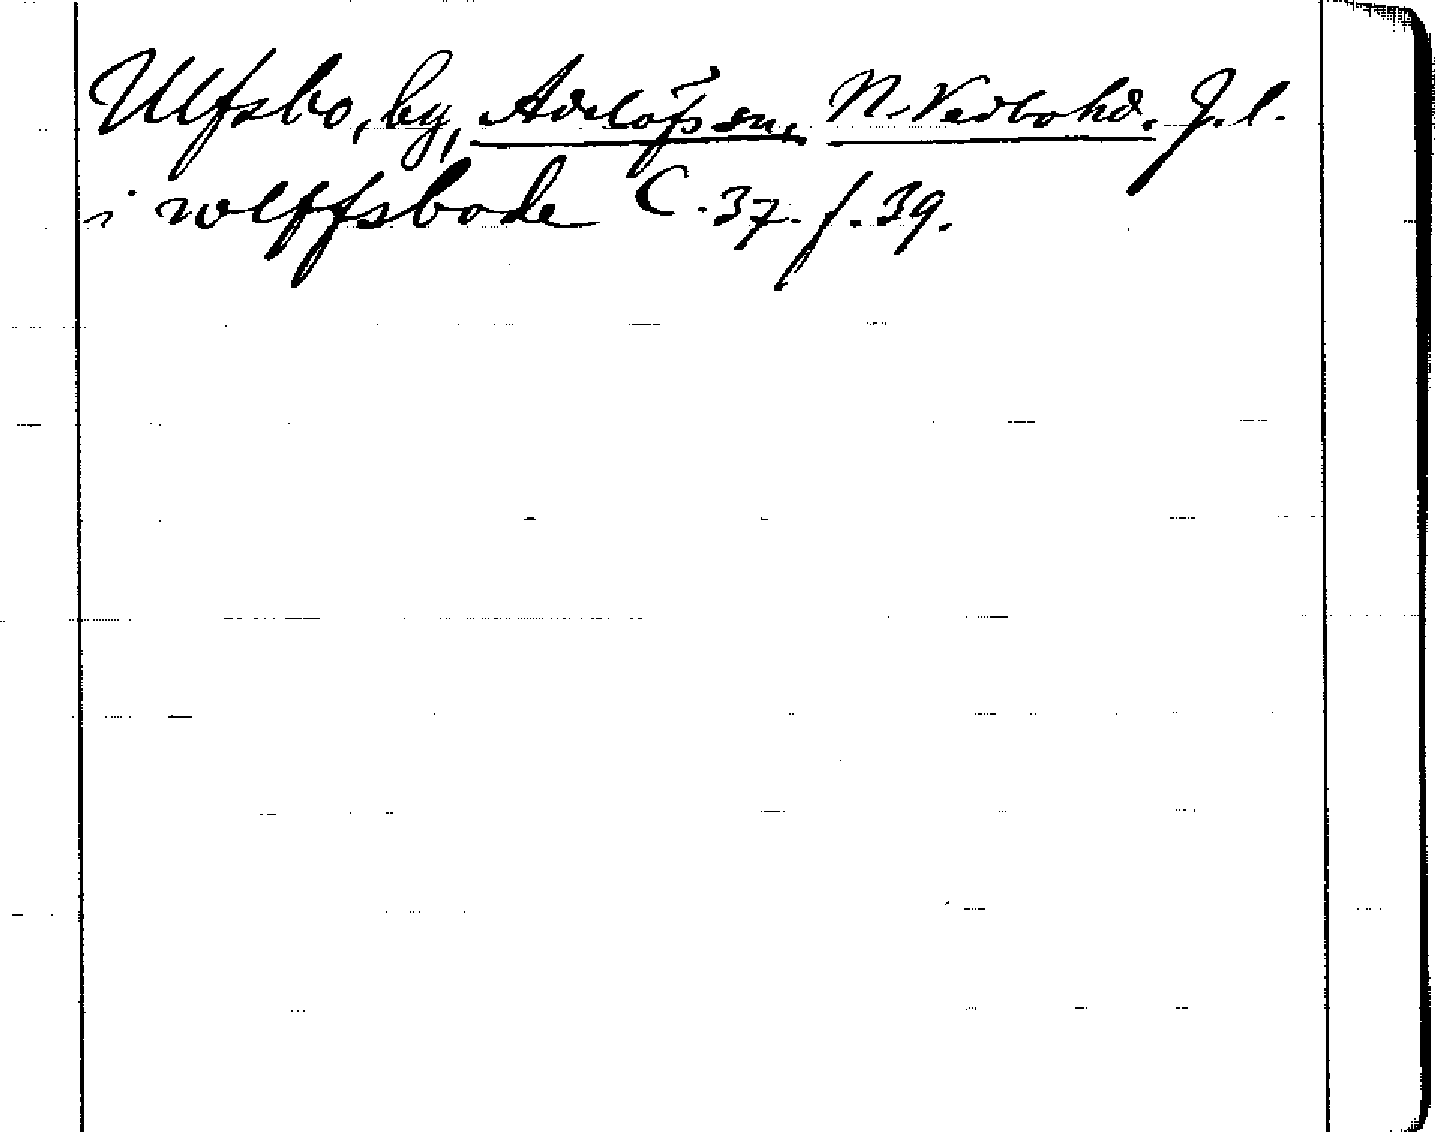 Ulfsbo, by, Adelöfs sn, N. Vedbo hd. J. l.
i wlffsbode C. 37. f. 39.